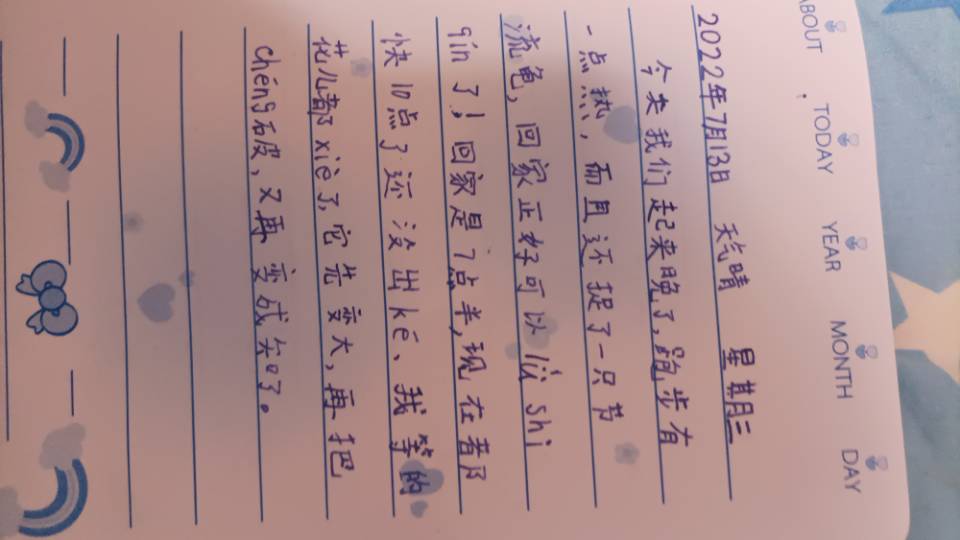 ABOUT TODAY YEAR MONTH DAY
2022年7月13日 天气晴 星期三
今天我们起来晚了,跑步有
一点热,而且还捉了一只节
流龟,回家正好可以lǜ shi
qín了!回家是7点半,现在都
快10点了还没出ké、我等的
花儿都xiè了,它先变大,再把
chéng破,又再变成尖了。